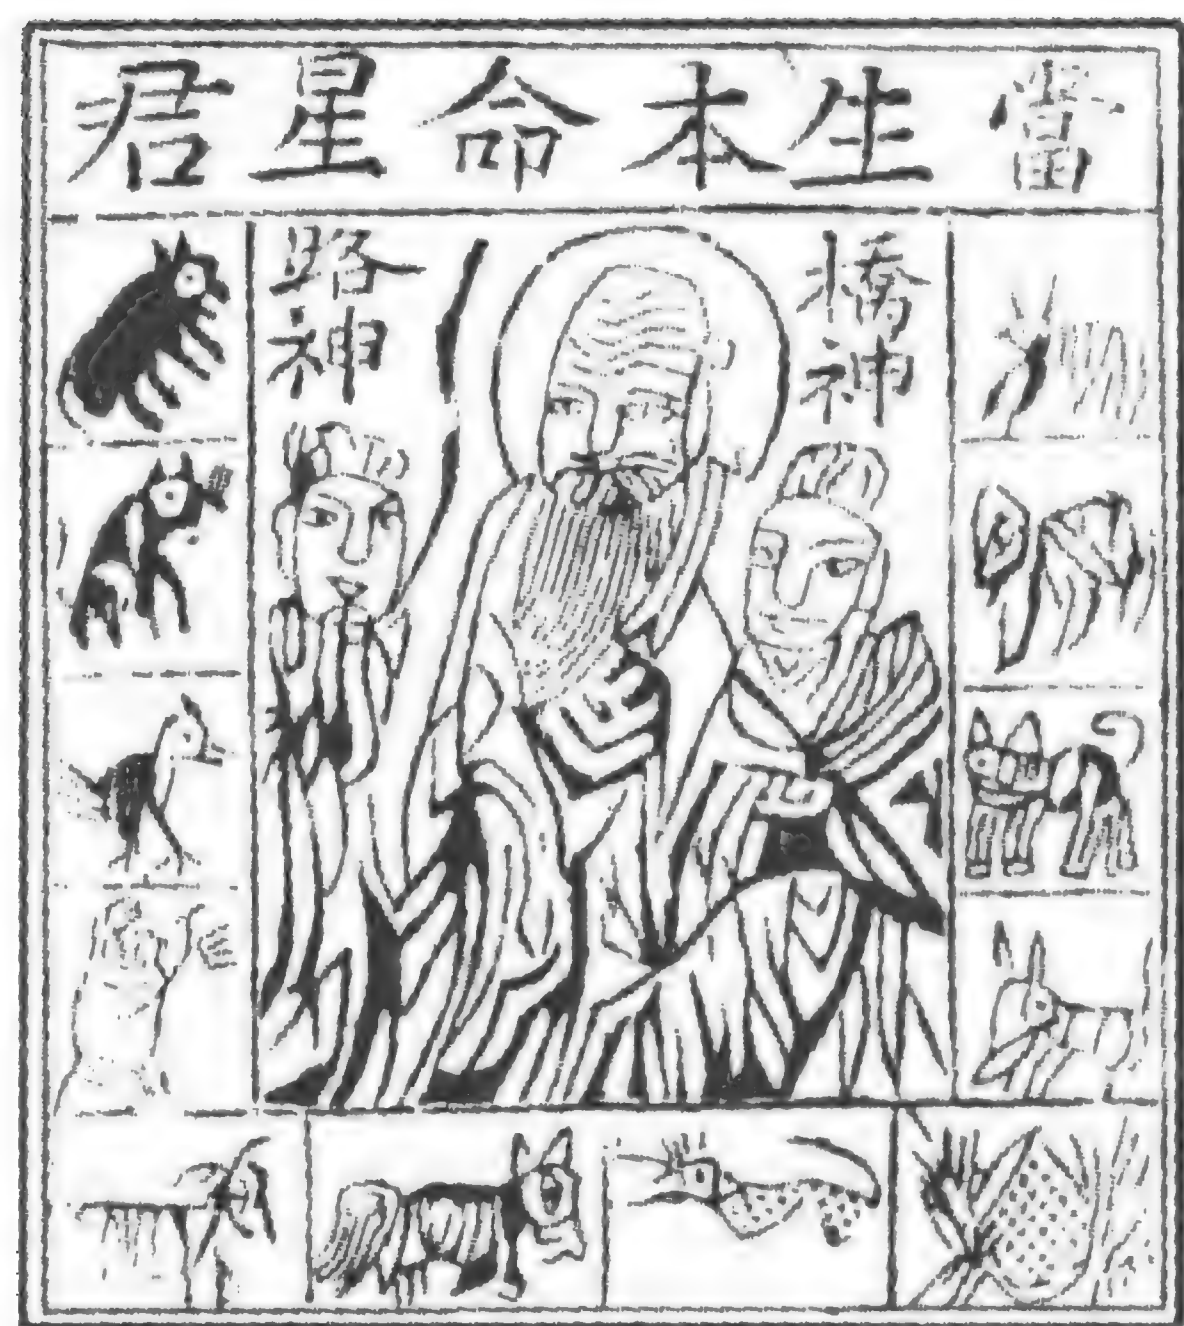 當生本命星君
橋神
路神